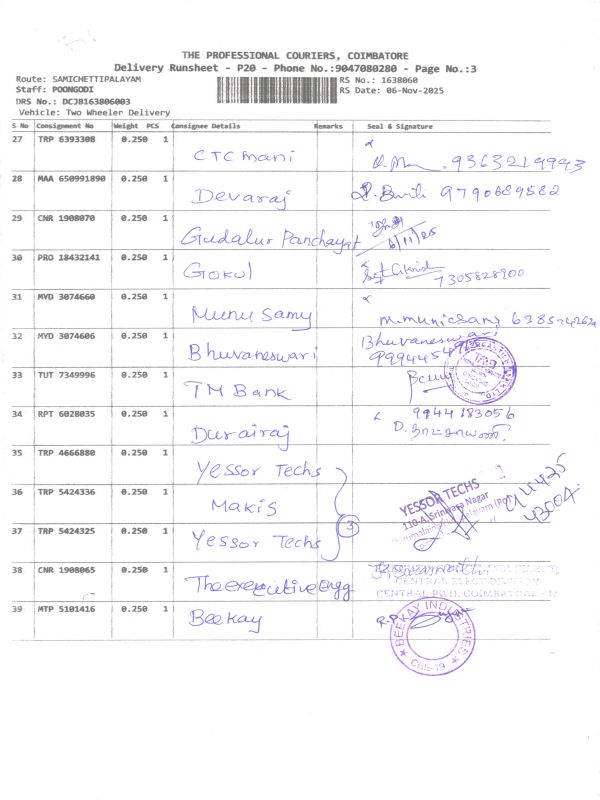 THE PROFESSIONAL COURIERS, COIMBATORE
Delivery Runsheet - P20 - Phone No.:9047080280 - Page No.:3
Route: SAMICHETTIPALAYAM
RS No.: 1638060
Staff: POONGODI
RS Date: 06-Nov-2025
DRS No.: DCJB163806003
Vehicle: Two Wheeler Delivery
S No Consignment No Weight PCS Consignee Details Remarks Seal & Signature
27 TRP 6393308 0.250 1 CTC mani
28 MAA 650991890 0.250 1 Devaraj 9790689582
29 CNR 1908070 0.250 1 Gudalur Panchayat 6/11/25
30 PRO 18432141 0.250 1 Gokul 7305828900
31 MYD 3074660 0.250 1 Munu Samy
32 MYD 3074606 0.250 1 Bhuvaneswari Bhuvaneswari
33 TUT 7349996 0.250 1 TM Bank
34 RPT 6028035 0.250 1 Durairaj 9944183056
35 TRP 4666880 0.250 1 Yessor Techs
36 TRP 5424336 0.250 1 Makis YESSOR TECHS
110-A, Srinivasa Nagar
37 TRP 5424325 0.250 1 Yessor Techs 3
38 CNR 1908065 0.250 1 The executive Engg
CENTRAL ELECT DIVISION
CENTRAL PWD, COIMBATORE
39 MTP 5101416 0.250 1 Beekay R.P.
BEEKAY INDUSTRIES
CBS-19